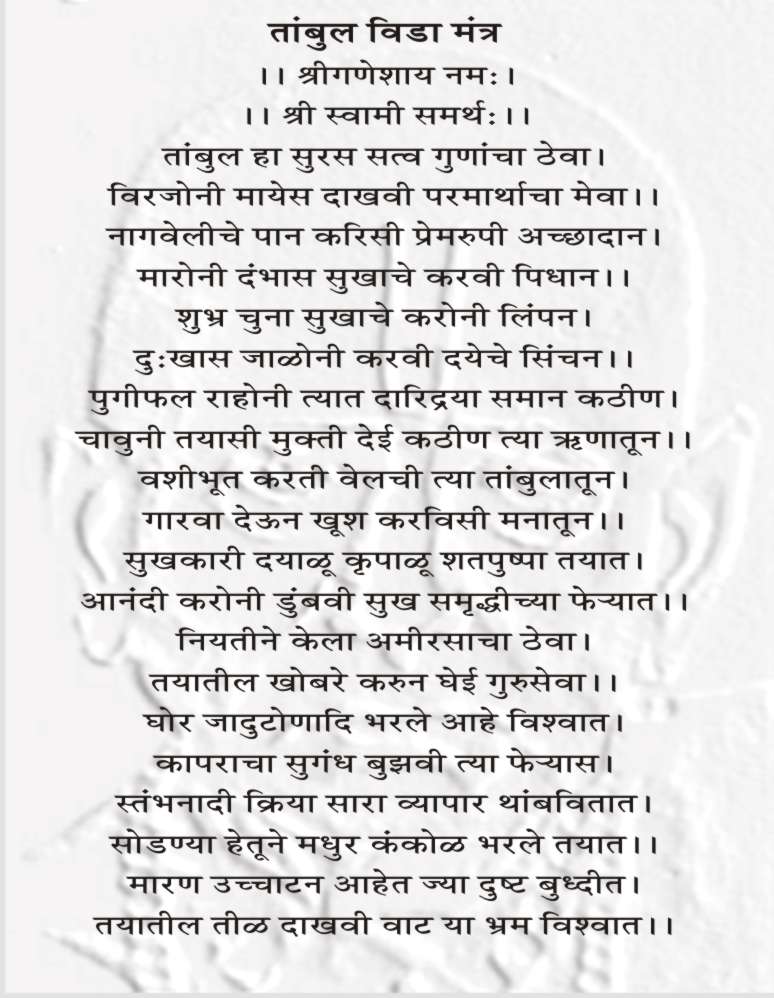 तांबुल विडा मंत्र
।। श्रीगणेशाय नमः।
।। श्री स्वामी समर्थः।।
तांबुल हा सुरस सत्व गुणांचा ठेवा।
विरजोनी मायेस दाखवी परमार्थाचा मेवा।।
नागवेलीचे पान करिसी प्रेमरुपी अच्छादान।
मारोनी दंभास सुखाचे करवी पिधान।।
शुभ्र चुना सुखाचे करोनी लिंपन।
दुःखास जाळोनी करवी दयेचे सिंचन।।
पुगीफल राहोनी त्यात दारिद्रया समान कठीण।
चावुनी तयासी मुक्ती देई कठीण त्या ऋणातून।।
वशीभूत करती वेलची त्या तांबुलातून।
गारवा देऊन खूश करविसी मनातून।।
सुखकारी दयाळू कृपाळू शतपुष्पा तयात।
आनंदी करोनी डुंबवी सुख समृद्धीच्या फेऱ्यात।।
नियतीने केला अमीरसाचा ठेवा।
तयातील खोबरे करुन घेई गुरुसेवा।।
घोर जादुटोणादि भरले आहे विश्वात।
कापराचा सुगंध बुझवी त्या फेऱ्यास।
स्तंभनादी क्रिया सारा व्यापार थांबवितात।
सोडण्या हेतूने मधुर कंकोळ भरले तयात।।
मारण उच्चाटन आहेत ज्या दुष्ट बुध्दीत।
तयातील तीळ दाखवी वाट या भ्रम विश्वात।।